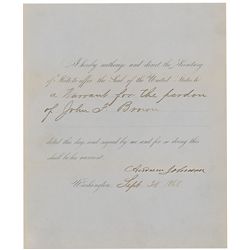 I hereby authorize and direct the Secretary
of State to affix the Seal of the United States to
a Warrant for the pardon
of John F. Brown
dated this day and signed by me and for so doing this
shall be his warrant.
Andrew Johnson
Washington, Sept. 186